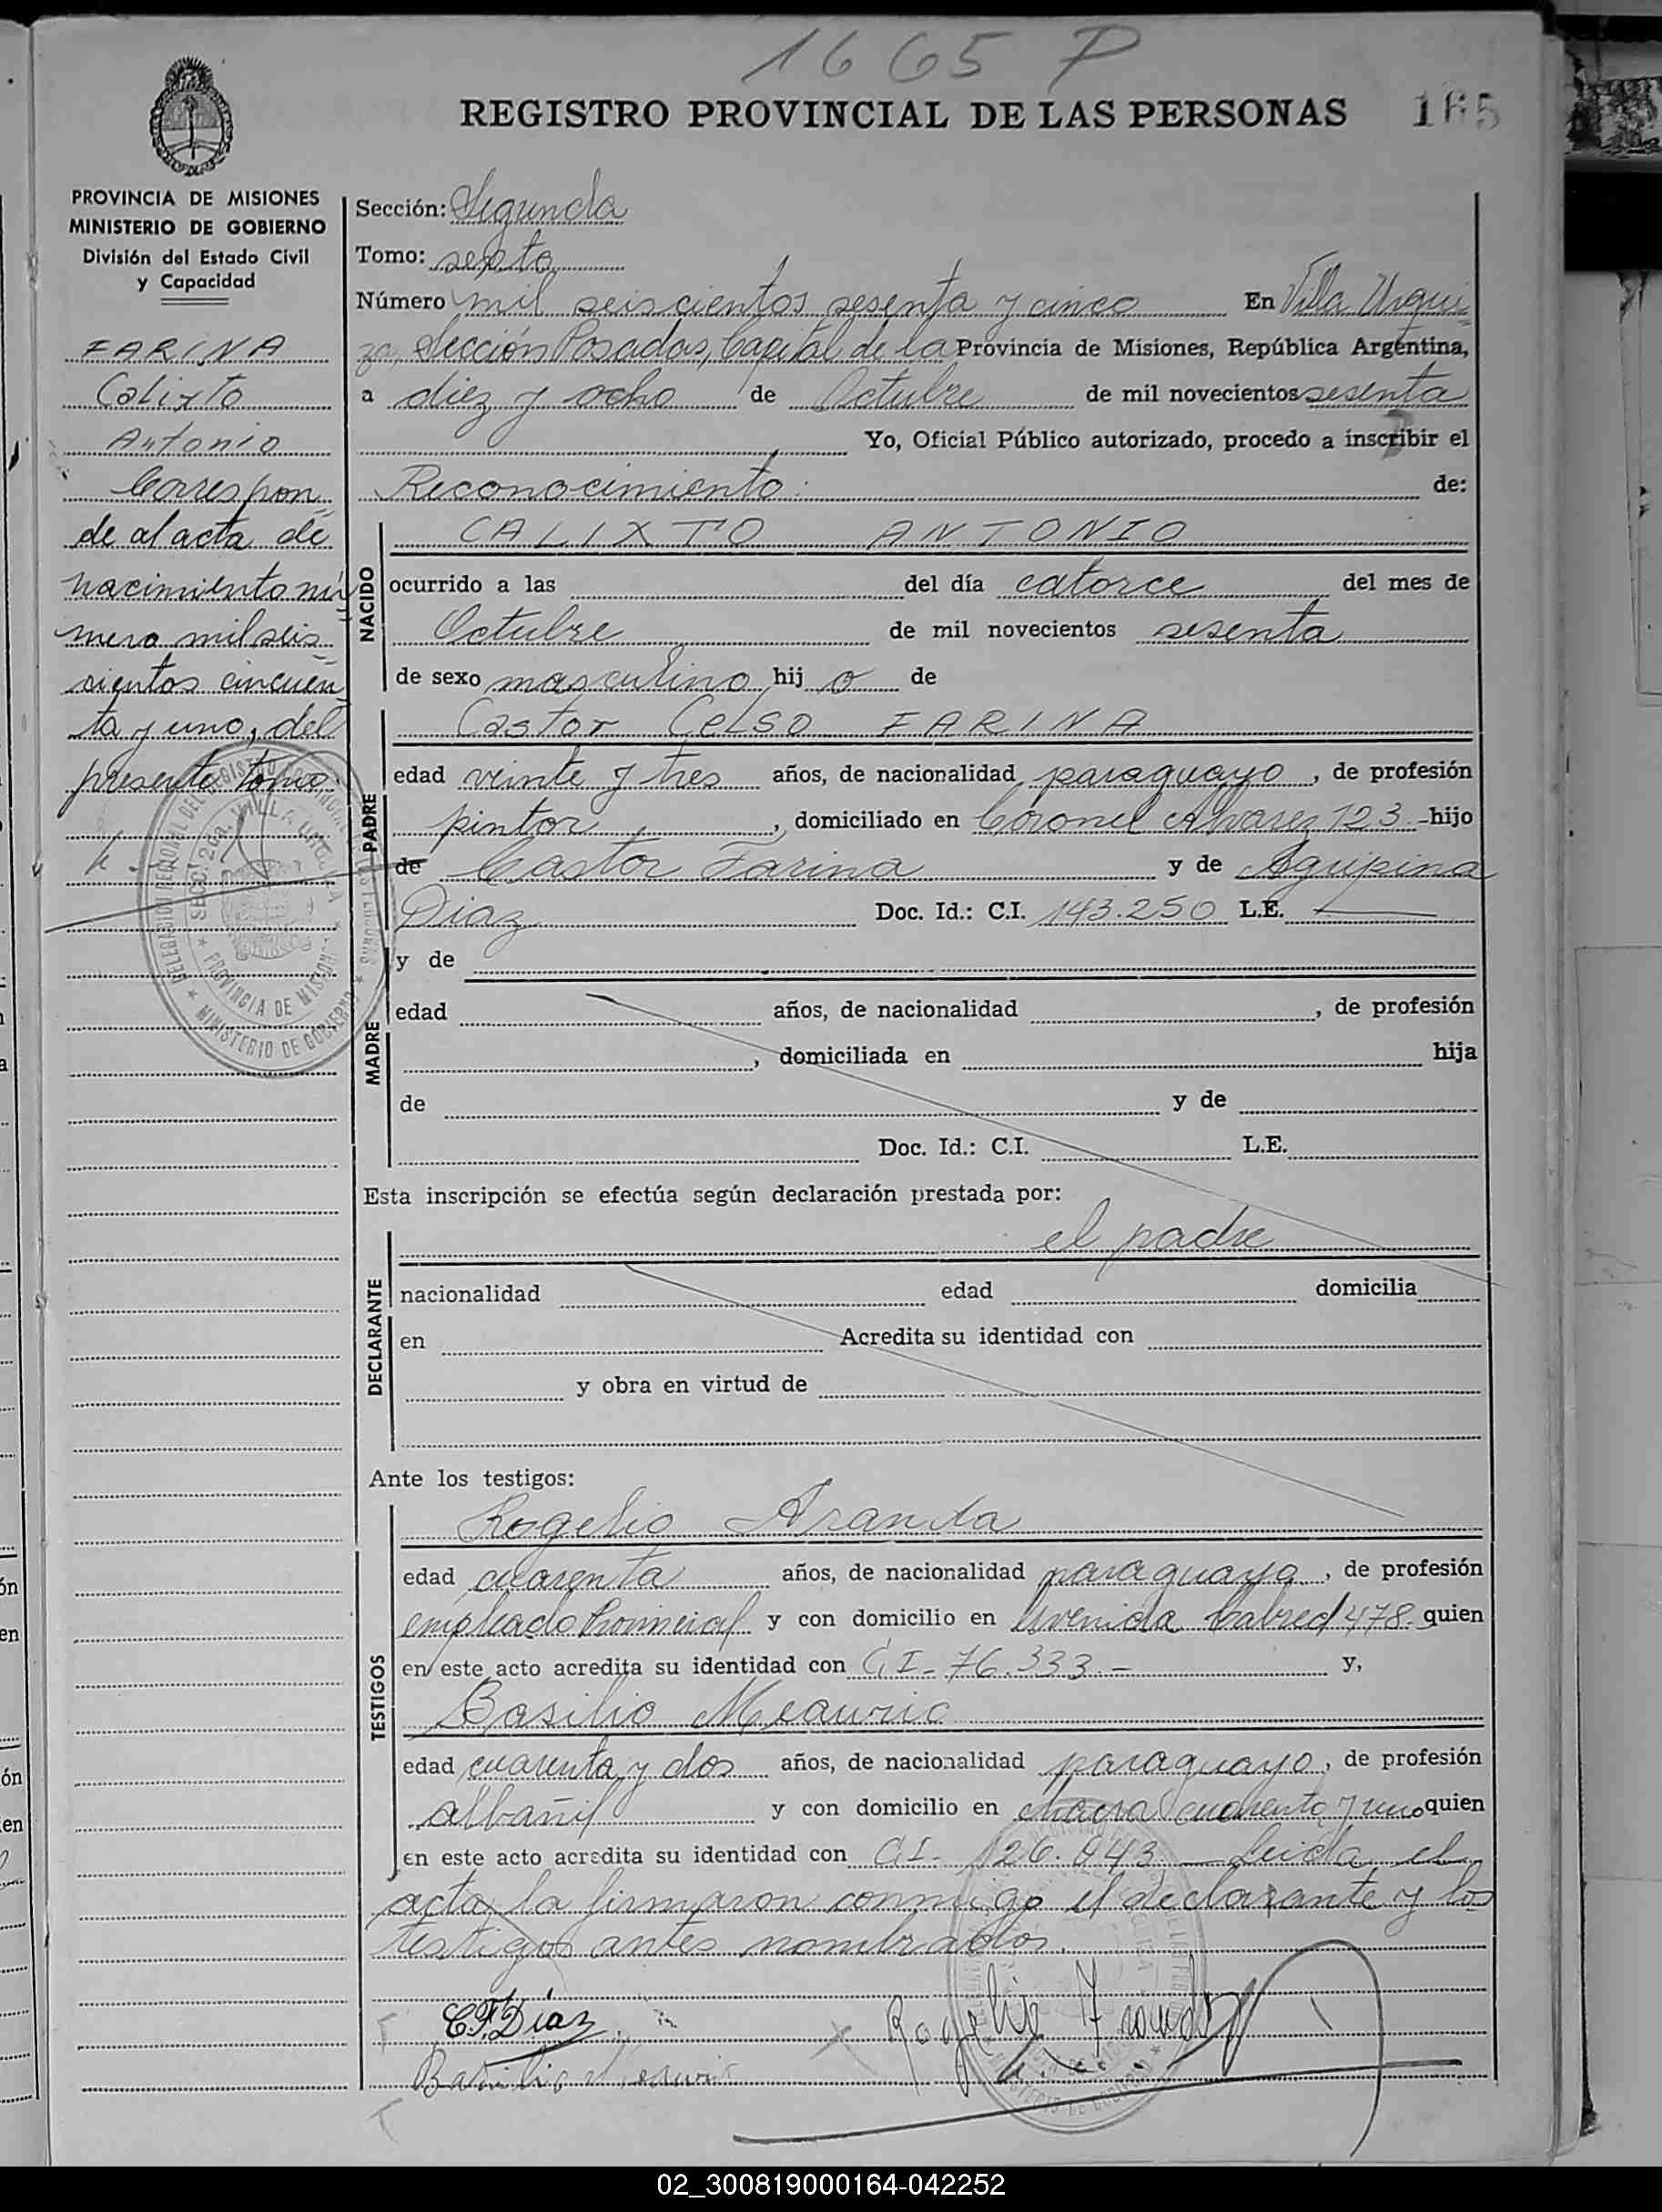 1665 P
REGISTRO PROVINCIAL DE LAS PERSONAS 165
PROVINCIA DE MISIONES
MINISTERIO DE GOBIERNO
División del Estado Civil
y Capacidad
FARINA
Calixto
Antonio
Correspon
de al acta de
nacimiento nú
mero mil seis
cientos cincuen
ta y uno, del
presente tomo.
Sección: Segunda
Tomo: sexto
Número mil seiscientos sesenta y cinco En Villa Urqui
za, Sección Posadas, Capital de la Provincia de Misiones, República Argentina,
a diez y ocho de Octubre de mil novecientos sesenta
Yo, Oficial Público autorizado, procedo a inscribir el
Reconocimiento: de:
NACIDO
CALIXTO ANTONIO
ocurrido a las del día catorce del mes de
Octubre de mil novecientos sesenta
de sexo masculino hij o de
PADRE
Castor Celso FARINA
edad veinte y tres años, de nacionalidad paraguayo, de profesión
pintor, domiciliado en Coronel Alvarez 123.- hijo
de Castor Farina y de Agripina
Diaz Doc. Id.: C.I. 143.250 L.E.
MADRE
y de
edad años, de nacionalidad , de profesión
, domiciliada en hija
de y de
Doc. Id.: C.I. L.E.
Esta inscripción se efectúa según declaración prestada por:
DECLARANTE
el padre
nacionalidad edad domicilia
en Acredita su identidad con
y obra en virtud de
Ante los testigos:
TESTIGOS
Rogelio Aranda
edad cuarenta años, de nacionalidad paraguaya, de profesión
empleado Provincial y con domicilio en Avenida Cabred 478. quien
en este acto acredita su identidad con C.I- 76.333.- y,
Basilio Meauric
edad cuarenta y dos años, de nacionalidad paraguayo, de profesión
albañil y con domicilio en chacra cuarenta y uno quien
en este acto acredita su identidad con C.I- 126.943 - Leida el
acta, la firmaron conmigo el declarante y los
testigos antes nombrados.
C.F. Díaz
Rogelio Aranda
Basilio Meauric
02_300819000164-042252